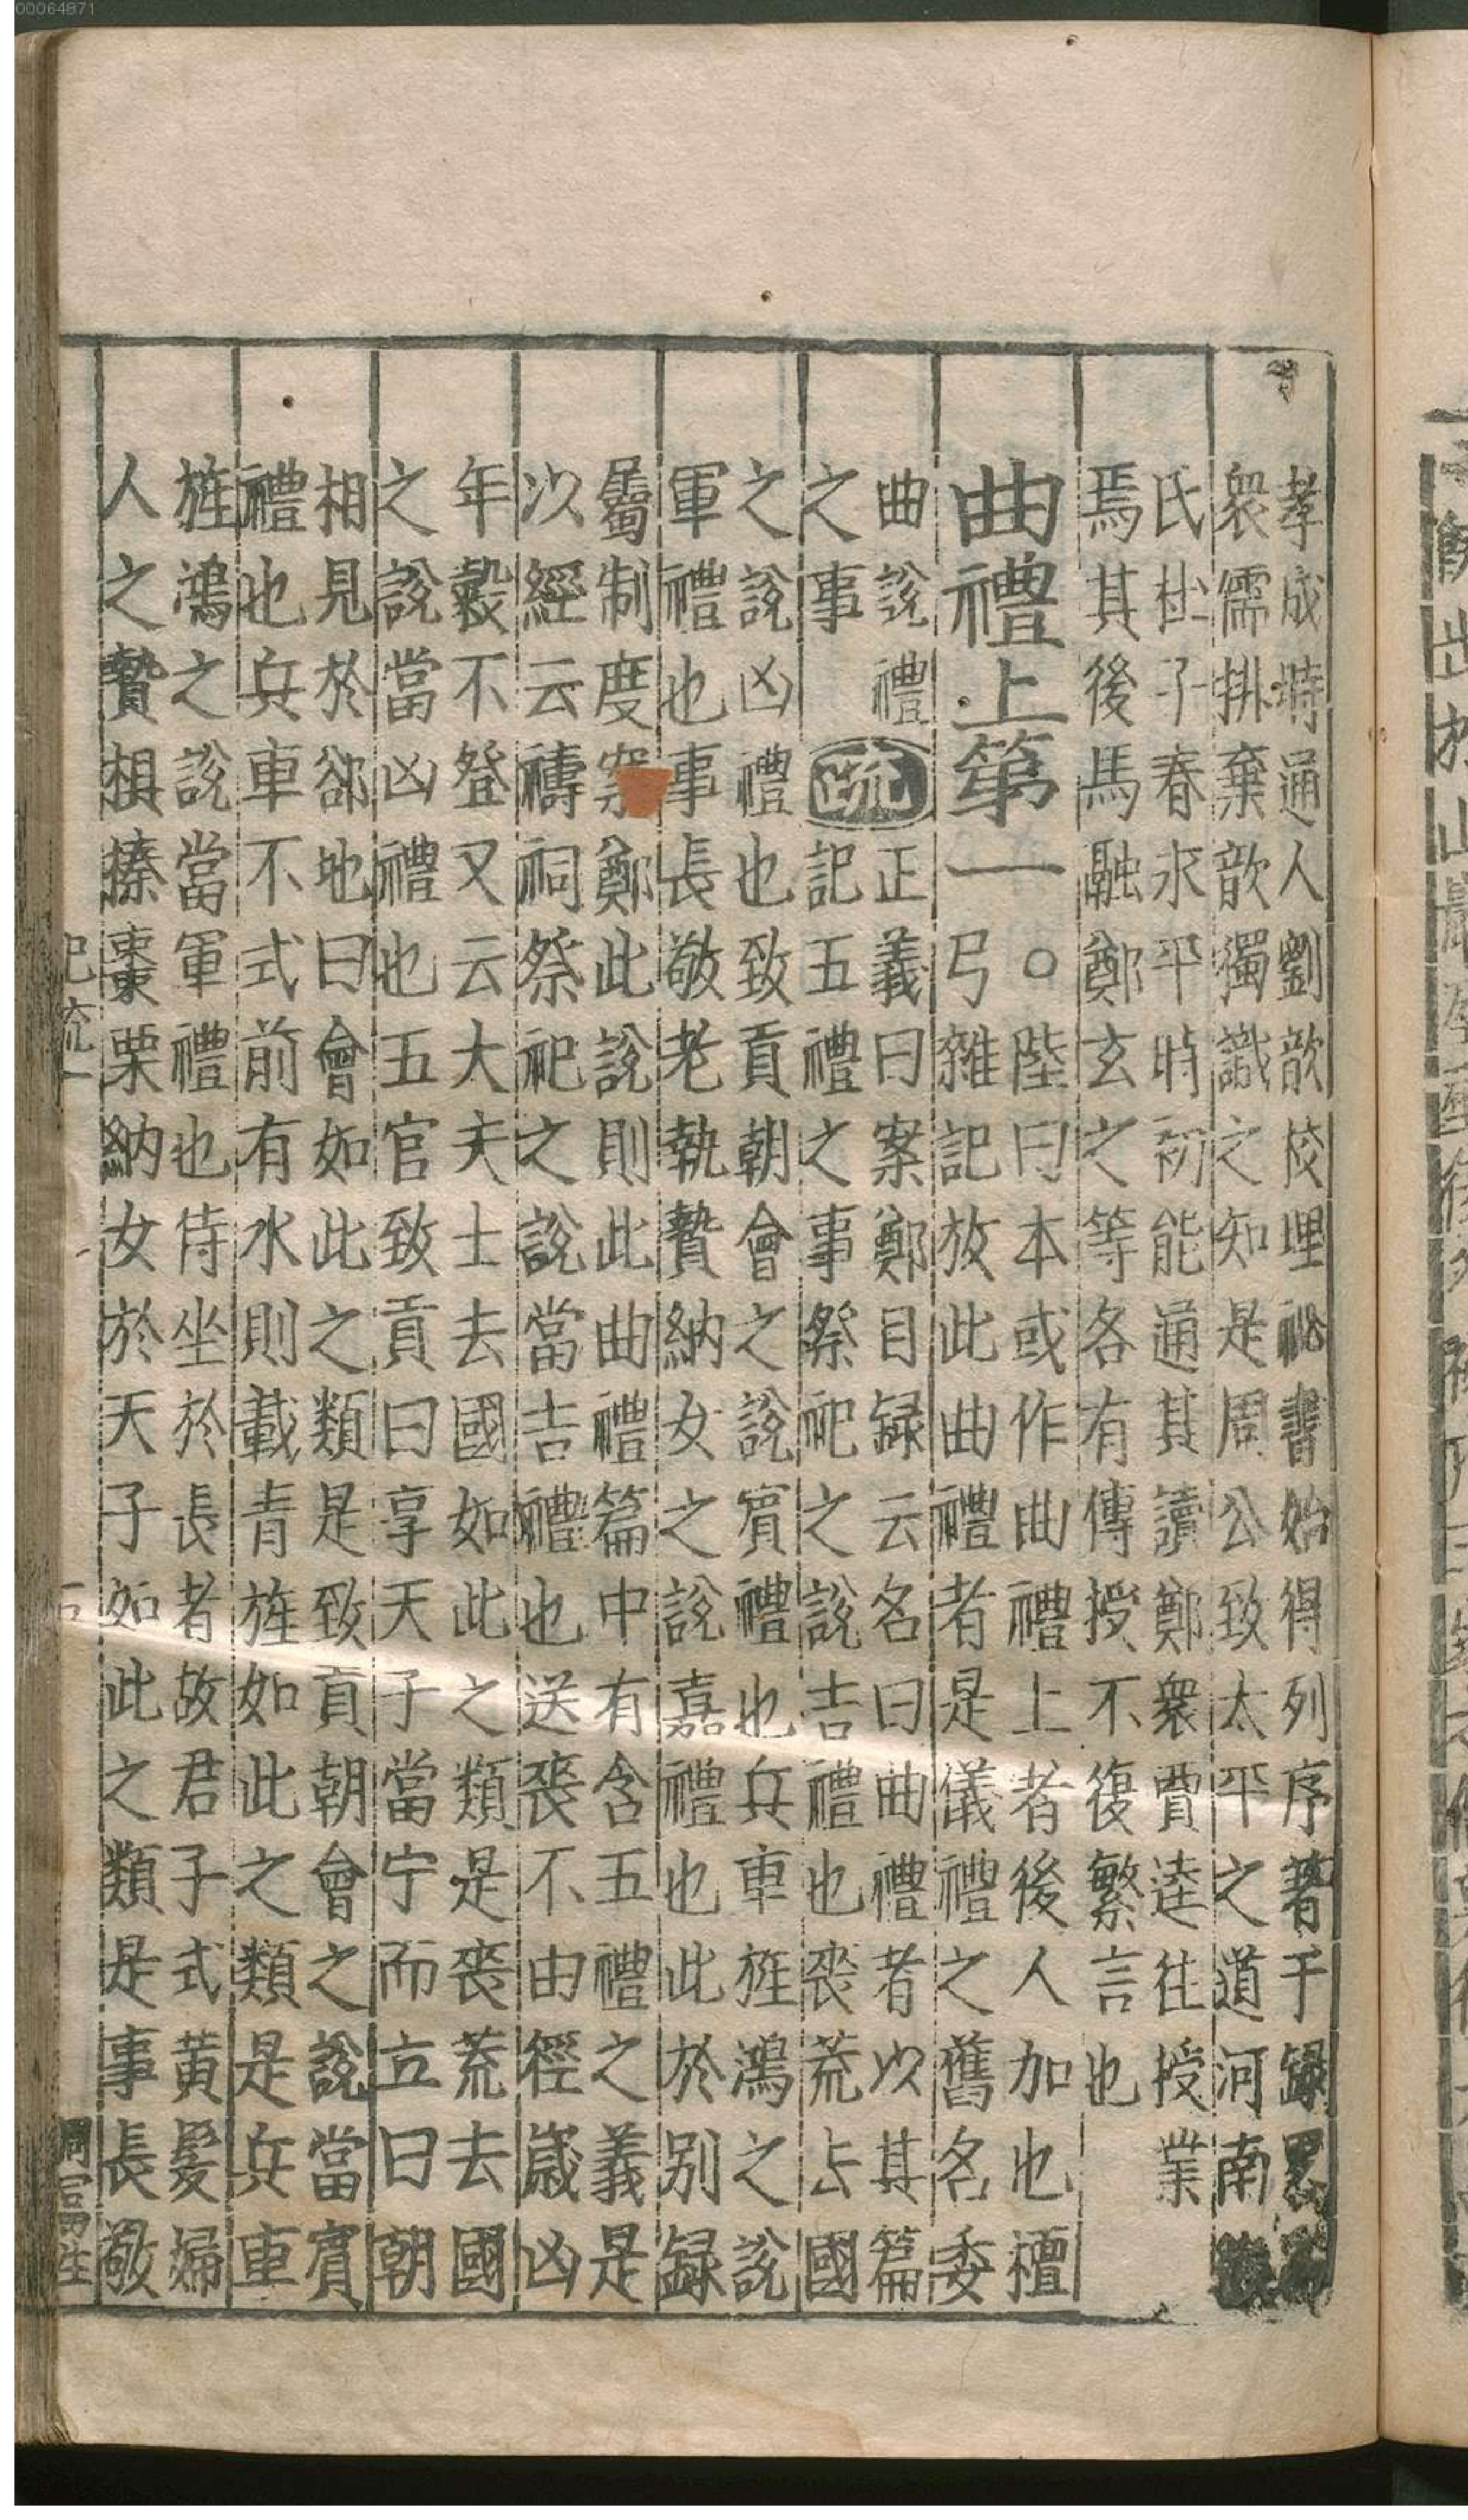 00064871
孝成時通人劉歆校理祕書始得列序著于録略
衆儒排棄歆獨識之知是周公致太平之道河南
氏杜子春永平時初能通其讀鄭衆賈逵往授業
焉其後馬融鄭玄之等各有傳授不復繁言也
曲禮上第一
○陸曰本或作曲禮上者後人加也檀
弓雜記放此曲禮者是儀禮之舊名委
曲說禮
之事
疏
正義曰案鄭目録云名曰曲禮者以其篇
記五禮之事祭祀之說吉禮也喪荒去國
之說凶禮也致貢朝會之說賔禮也兵車旌鴻之說
軍禮也事長敬老執贄納女之說嘉禮也此於别録
屬制度案鄭此說則此曲禮篇中有含五禮之義是
以經云禱祠祭祀之說當吉禮也送喪不由徑歲凶
年穀不登又云大夫士去國如此之類是喪荒去國
之說當凶禮也五官致貢曰享天子當宁而立曰朝
相見於郤地曰會如此之類是致貢朝會之說當賔
禮也兵車不式前有水則載青旌如此之類是兵車
旌鴻之說當軍禮也侍坐於長者故君子式黄髪婦
人之贄椇榛棗栗納女於天子如此之類是事長敬